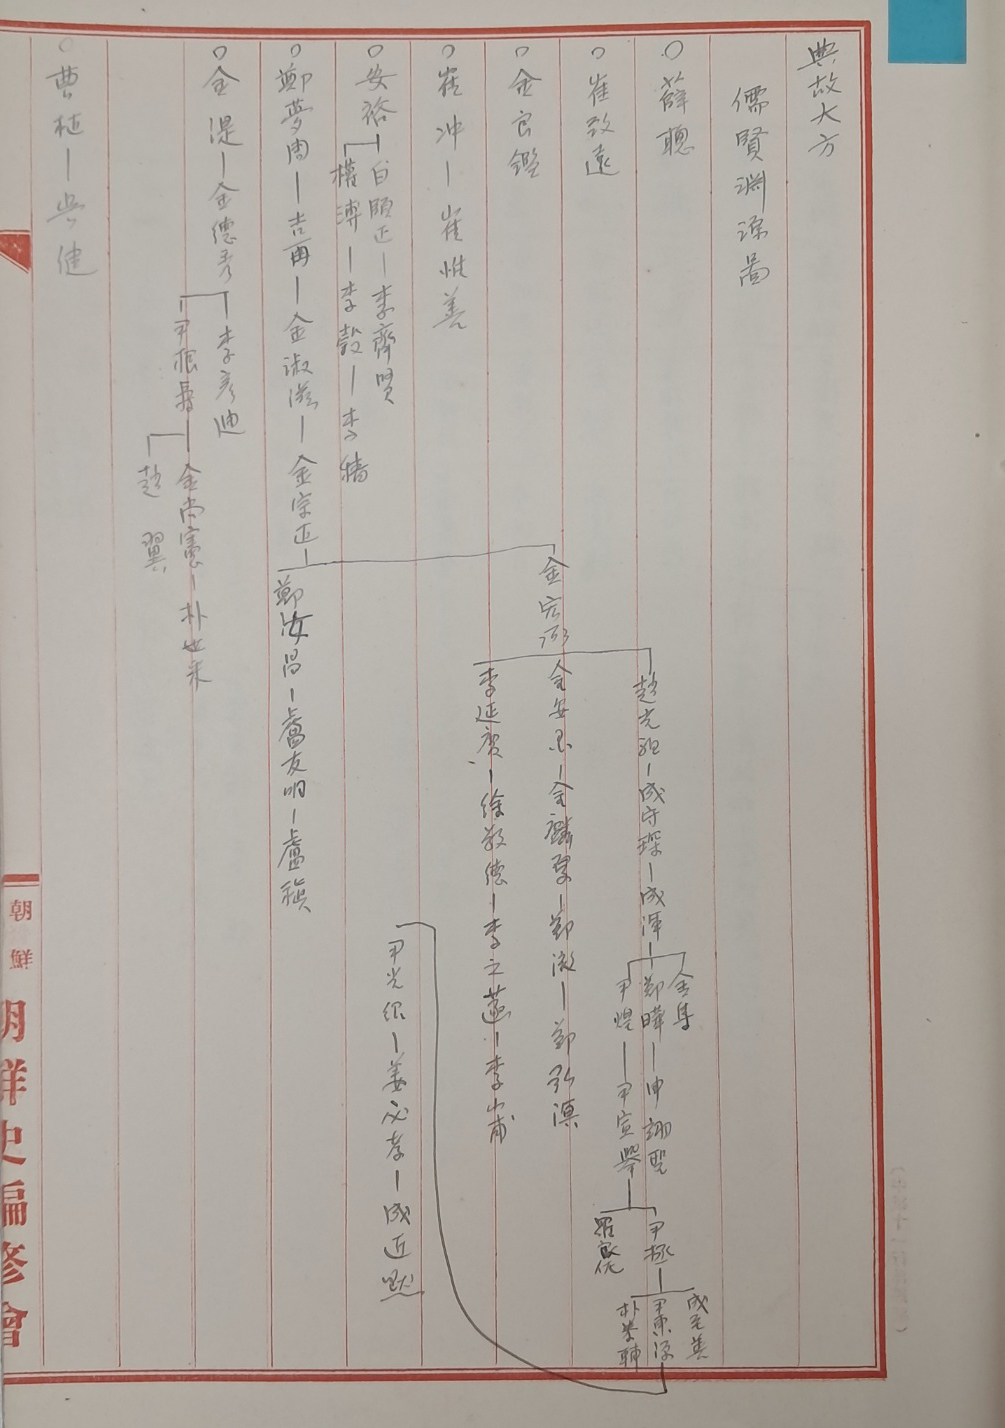 典故大方
儒賢淵源圖
○薛聰
○崔致遠
○金良鑑
○崔冲―崔惟善
○安裕
白頤正―李齊賢
權溥―李穀―李穡
○鄭夢周―吉再―金淑滋―金宗直
金宏弼
趙光祖―成守琛―成渾
金集
鄭曄―申翊聖
尹煌―尹宣擧
尹拯
羅良佐
成至善
尹東源
朴泰輔
尹光紹―姜必孝―成近默
金安国―金麟厚―鄭澈―鄭弘溟
李延慶―徐敬德―李之菡―李山甫
鄭汝昌―盧友明―盧禛
○金湜―金德秀
李彦迪
尹根壽
金尚憲―朴世采
趙翼
○曹植―吳健
朝鮮
朝鮮史編修會